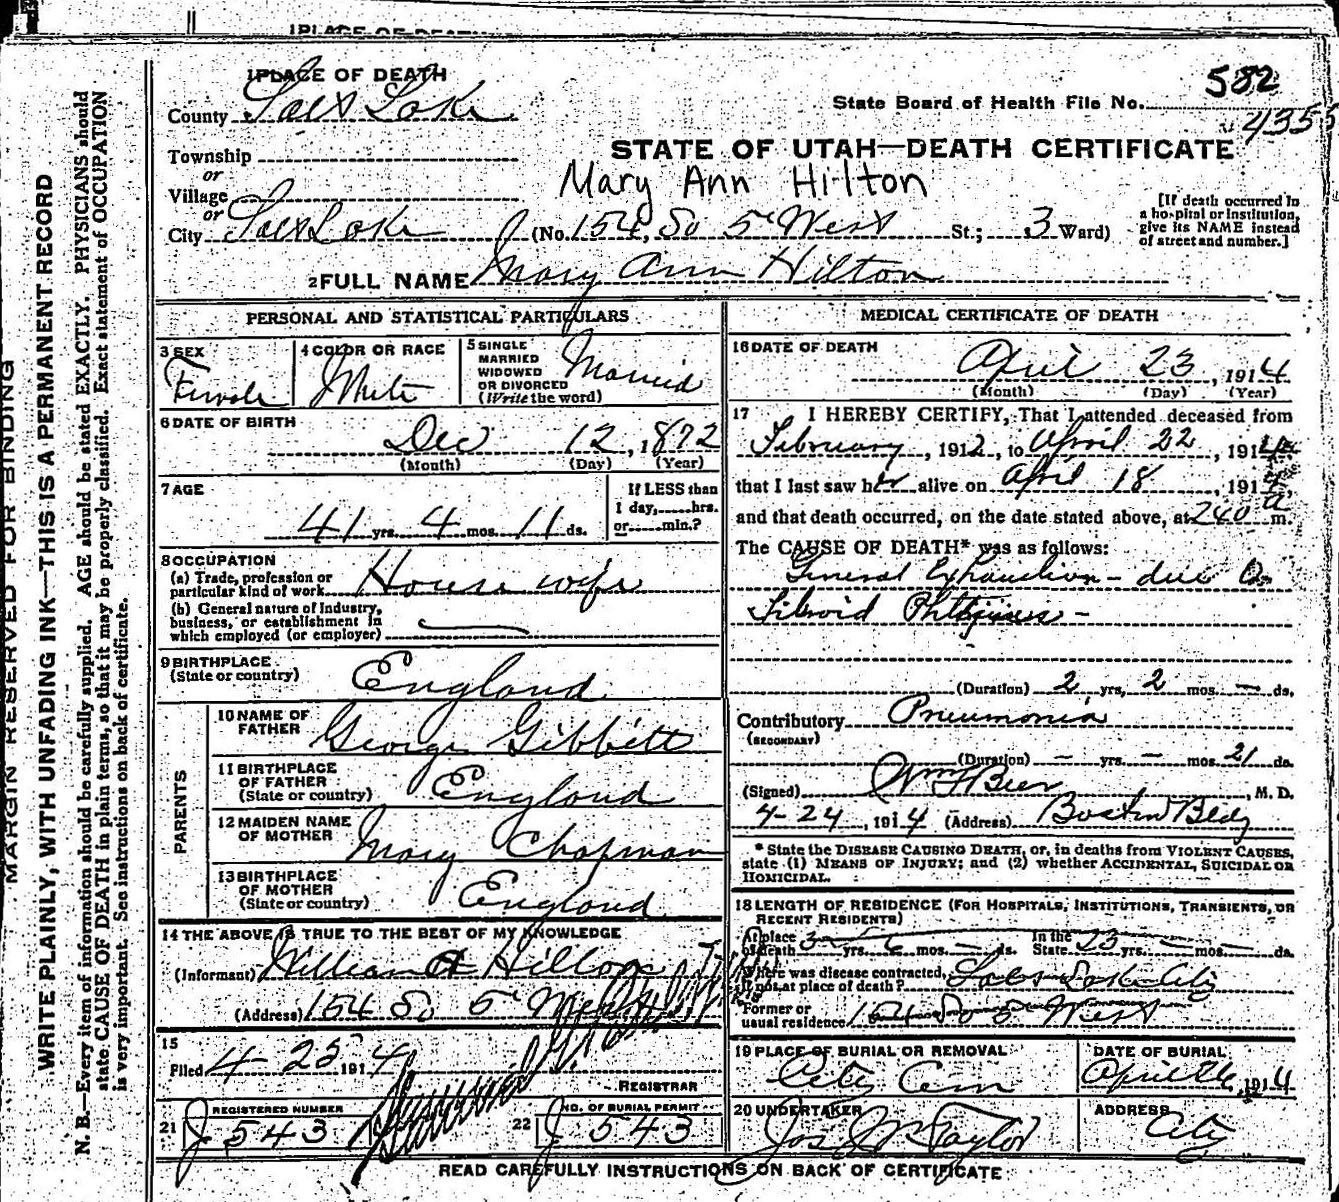 1 PLACE OF DEATH
1 PLACE OF DEATH
582
County Salt Lake
State Board of Health File No.
435
Township
STATE OF UTAH—DEATH CERTIFICATE
or
Mary Ann Hilton
Village
or
City Salt Lake (No. 154 So 5th West St.; 3 Ward)
[If death occurred in a hospital or institution, give its NAME instead of street and number.]
2 FULL NAME Mary Ann Hilton
PERSONAL AND STATISTICAL PARTICULARS
3 SEX Female
4 COLOR OR RACE White
5 SINGLE MARRIED WIDOWED OR DIVORCED (Write the word) Married
6 DATE OF BIRTH Dec 12, 1872
(Month) (Day) (Year)
7 AGE 41 yrs. 4 mos. 11 ds.
If LESS than 1 day,......hrs. or......min.?
8 OCCUPATION
(a) Trade, profession or particular kind of work House wife
(b) General nature of Industry, business, or establishment in which employed (or employer)
9 BIRTHPLACE (State or country) England
PARENTS
10 NAME OF FATHER George Gibbett
11 BIRTHPLACE OF FATHER (State or country) England
12 MAIDEN NAME OF MOTHER Mary Chapman
13 BIRTHPLACE OF MOTHER (State or country) England
14 THE ABOVE IS TRUE TO THE BEST OF MY KNOWLEDGE
(Informant) William Hilton
(Address) 154 So 5th West
15
Filed 4-25 1914
REGISTRAR
21 REGISTERED NUMBER J 543
22 NO. OF BURIAL PERMIT J 543
MEDICAL CERTIFICATE OF DEATH
16 DATE OF DEATH April 23, 1914
(Month) (Day) (Year)
17 I HEREBY CERTIFY, That I attended deceased from
February, 1912, to April 22, 1914
that I last saw her alive on April 18, 1914,
and that death occurred, on the date stated above, at 240 a m.
The CAUSE OF DEATH* was as follows:
General Exhaustion - due to
Fibroid Phthisis -
(Duration) 2 yrs. 2 mos. - ds.
Contributory Pneumonia
(SECONDARY)
(Duration) - yrs. - mos. 21 ds.
(Signed) Wm Beer, M. D.
4-24, 1914 (Address) Boston Bldg
* State the DISEASE CAUSING DEATH, or, in deaths from VIOLENT CAUSES, state (1) MEANS OF INJURY; and (2) whether ACCIDENTAL, SUICIDAL OR HOMICIDAL.
18 LENGTH OF RESIDENCE (FOR HOSPITALS, INSTITUTIONS, TRANSIENTS, OR RECENT RESIDENTS)
At place of death 3 yrs. 6 mos. - ds. In the State 23 yrs. - mos. - ds.
Where was disease contracted, if not at place of death? Salt Lake City
Former or usual residence 154 So 5 West
19 PLACE OF BURIAL OR REMOVAL City Cem
DATE OF BURIAL April 26, 1914
20 UNDERTAKER Jos Wm Taylor
ADDRESS City
READ CAREFULLY INSTRUCTIONS ON BACK OF CERTIFICATE
MARGIN RESERVED FOR BINDING
WRITE PLAINLY, WITH UNFADING INK—THIS IS A PERMANENT RECORD
N. B.—Every item of information should be carefully supplied. AGE should be stated EXACTLY. PHYSICIANS should
state CAUSE OF DEATH in plain terms, so that it may be properly classified. Exact statement of OCCUPATION
is very important. See instructions on back of certificate.